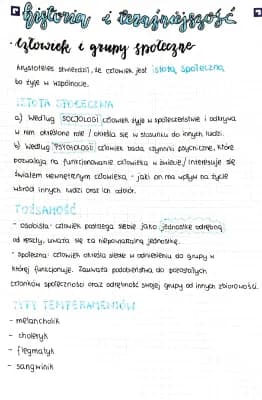 Historia i teraźniejszość
• Człowiek i grupy społeczne
Arystoteles stwierdził, że człowiek jest istotą społeczną
bo żyje w wspólnocie.
ISTOTA SPOŁECZNA
a) Według SOCJOLOGII człowiek żyje w społeczeństwie i odkrywa
w nim określone role / określa się w stosunku do innych ludzi.
b) Według PSYCHOLOGII człowiek bada czynniki psychiczne, które
pozwalają na funkcjonowanie człowieka w świecie / interesuje się
światem wewnętrznym człowieka - jaki on ma wpływ na życie
wśród innych ludzi oraz ich odbiór.
TOŻSAMOŚĆ
- osobista: człowiek postrzega siebie jako jednostkę odrębną
od reszty, uważa się za niepowtarzalną jednostkę.
- społeczna: człowiek określa siebie w odniesieniu do grupy w
której funkcjonuje. Zauważa podobieństwa do pozostałych
członków społeczności oraz odrębność swojej grupy od innych zbiorowości.
TYPY TEMPERAMENTÓW
- melancholik
- choleryk
- flegmatyk
- sangwinik